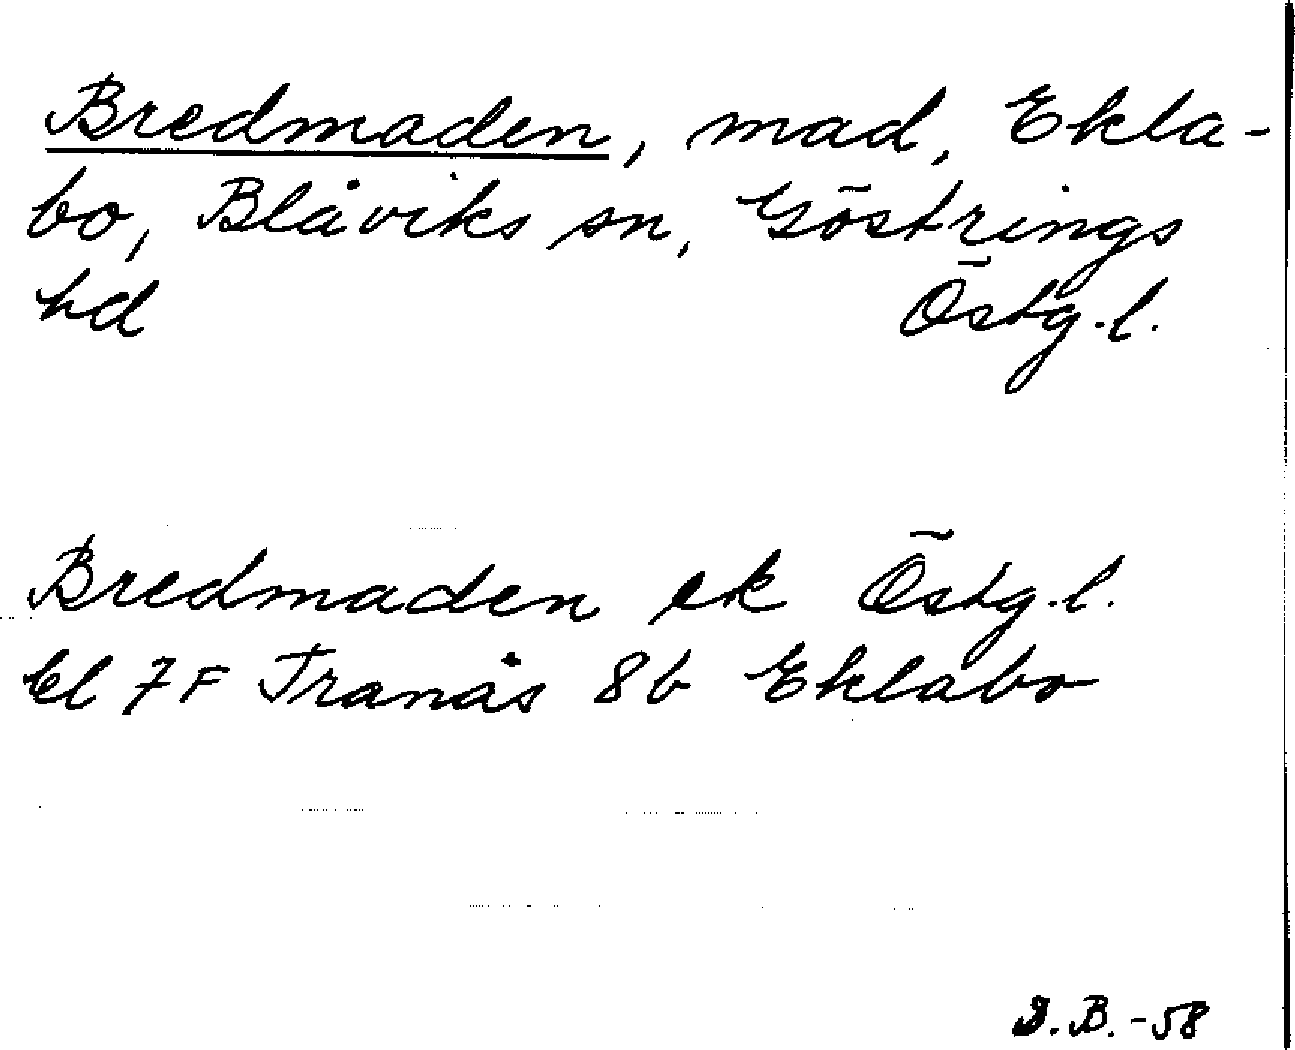 Bredmaden, mad, Ekla-
bo, Blåviks sn, Göstrings
hd Östg.l.
Bredmaden ek Östg.l.
bl 7F Tranås 8b Eklabo
B.-58